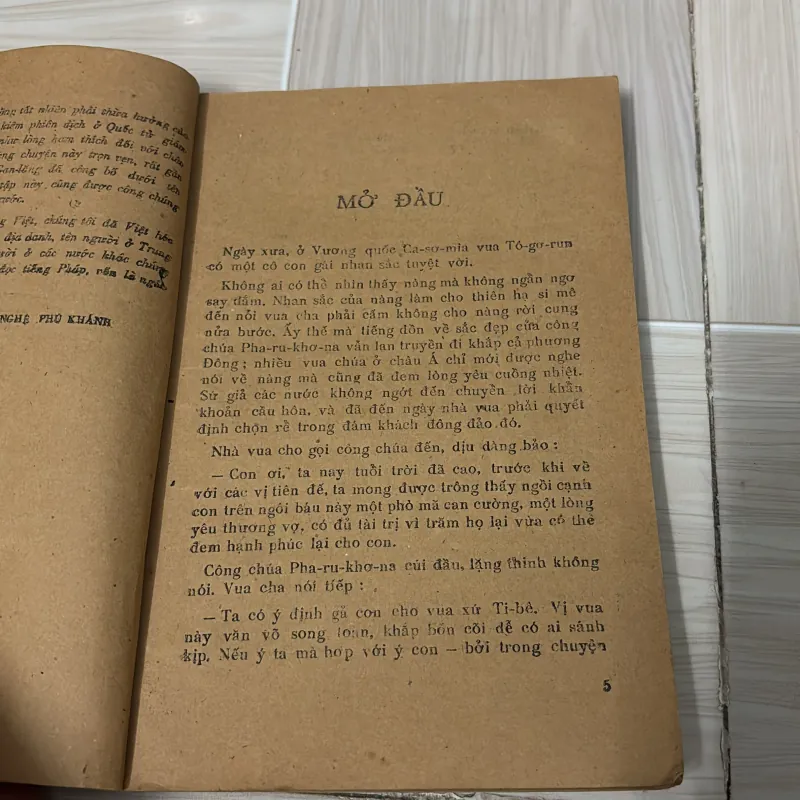 tất nhiên phải thừa hưởng của
kiêm phiên dịch ở Quốc tử giám
lòng ham thích đối với chân
chuyện này trọn vẹn, rất gần
đã công bố dưới tên
tập này, cũng được công chúng
Việt, chúng tôi đã Việt hóa
địa danh, tên người ở Trung
ở các nước khác chúng
đọc tiếng Pháp, vốn là ngôn
NGHỆ PHÚ KHÁNH
MỞ ĐẦU
Ngày xưa, ở Vương quốc Ca-sơ-mia vua Tô-gơ-run
có một cô con gái nhan sắc tuyệt vời.
Không ai có thể nhìn thấy nàng mà không ngẩn ngơ
say đắm. Nhan sắc của nàng làm cho thiên hạ si mê
đến nỗi vua cha phải cấm không cho nàng rời cung
nửa bước. Ấy thế mà tiếng đồn về sắc đẹp của công
chúa Pha-ru-khơ-na vẫn lan truyền đi khắp cả phương
Đông; nhiều vua chúa ở châu Á chỉ mới được nghe
nói về nàng mà cũng đã đem lòng yêu cuồng nhiệt.
Sứ giả các nước không ngớt đến chuyển lời khẩn
khoản cầu hôn, và đã đến ngày nhà vua phải quyết
định chọn rể trong đám khách đông đảo đó.
Nhà vua cho gọi công chúa đến, dịu dàng bảo :
— Con ơi, ta nay tuổi trời đã cao, trước khi về
với các vị tiên đế, ta mong được trông thấy ngồi cạnh
con trên ngôi báu này một phò mã can cường, một lòng
yêu thương vợ, có đủ tài trị vì trăm họ lại vừa có thể
đem hạnh phúc lại cho con.
Công chúa Pha-ru-khơ-na cúi đầu, lặng thinh không
nói. Vua cha nói tiếp :
— Ta có ý định gả con cho vua xứ Ti-bê. Vị vua
này văn võ song toàn, khắp bốn cõi dễ có ai sánh
kịp. Nếu ý ta mà hợp với ý con — bởi trong chuyện
5